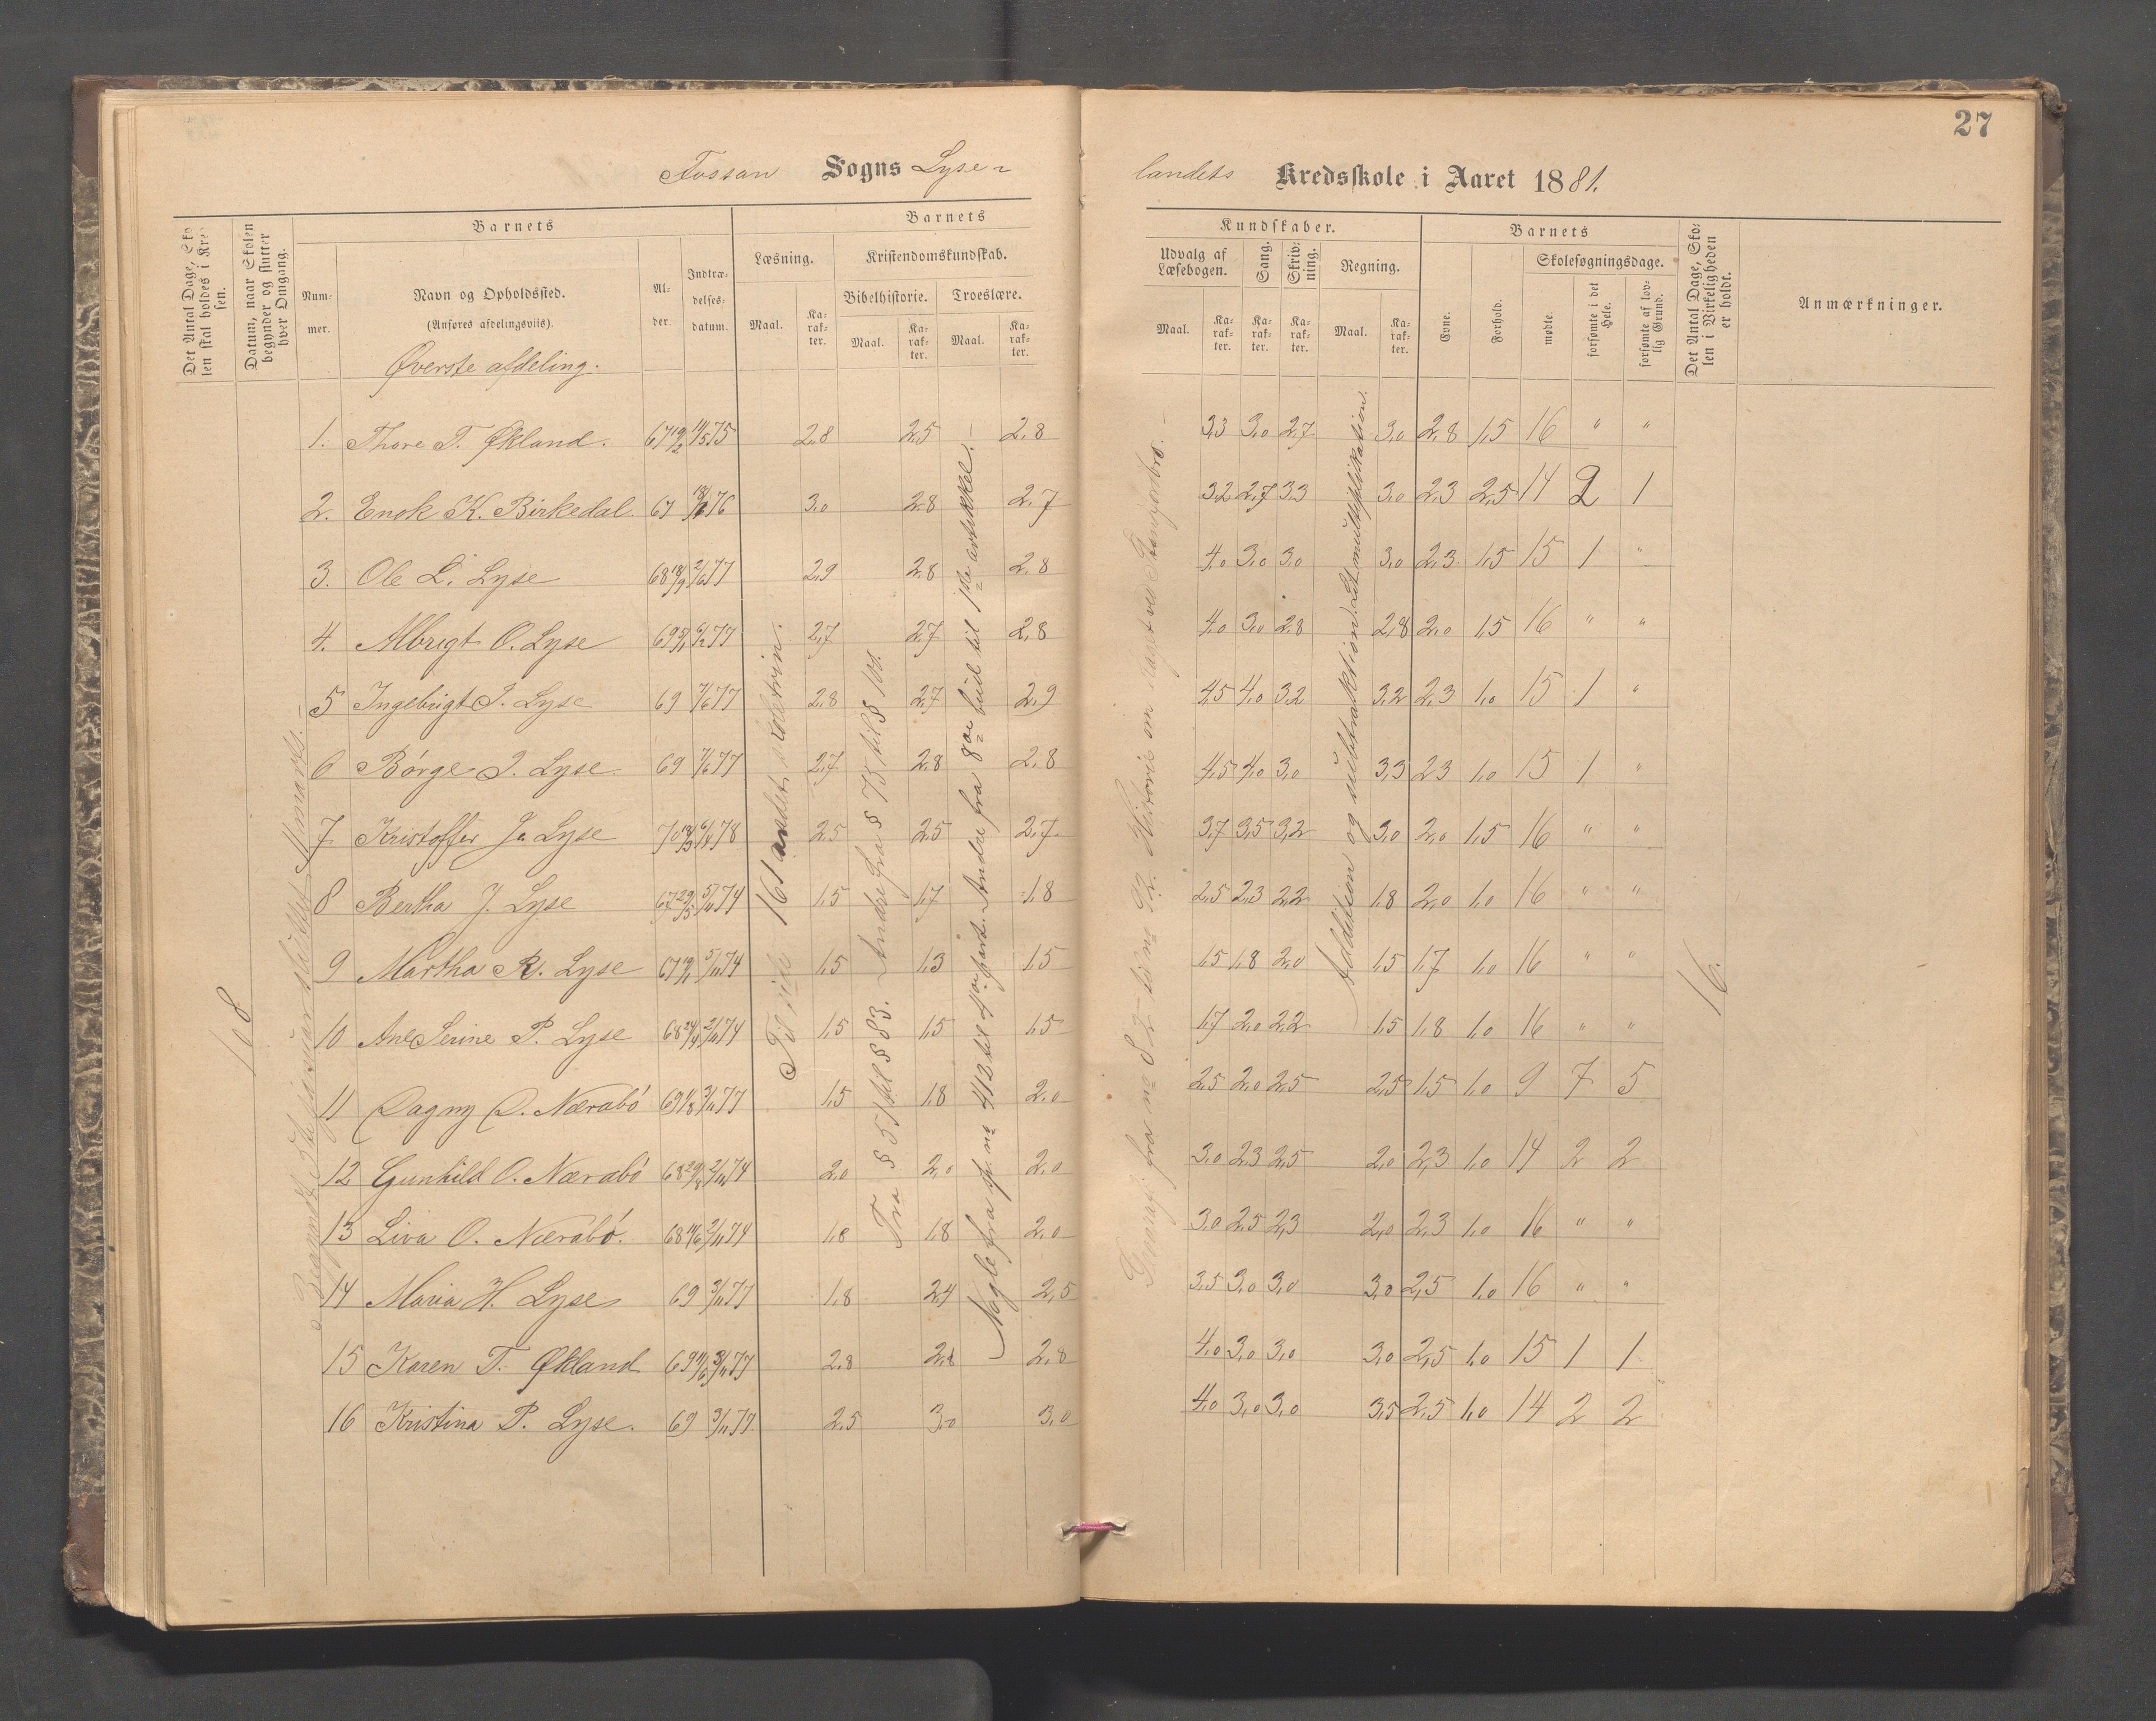 27
Fossan Sogns Lyse-
landets Kredsskole i Aaret 1881.
Det Antal Dage, Skolen skal holdes i Kredsen.
Datum, naar Skolen begynder og slutter hver Omgang.
Barnets
Nummer.
Navn og Opholdssted.
(Anføres afdelingsviis).
Øverste afdeling.
Alder.
Indtrædelsesdatum.
Barnets
Læsning.
Maal.
Karakter.
Kristendomskundskab.
Bibelhistorie.
Maal.
Karakter.
Troeslære.
Maal.
Karakter.
Kundskaber.
Udvalg af Læsebogen.
Maal.
Karakter.
Sang.
Karakter.
Skrivning.
Karakter.
Regning.
Maal.
Karakter.
Barnets
Evne.
Forhold.
Skolesøgningsdage.
mødte.
forsømte i det Hele.
forsømte af lovlig Grund.
Det Antal Dage, Skolen i Virkeligheden er holdt.
Anmærkninger.
1. Thore T. Økland. 67 19/2 14/5 75 2,8 2,5 2,8 3,3 3,0 2,7 3,0 2,8 1,5 16 " "
2. Enok K. Birkedal. 67 76 3,0 2,8 2,7 3,2 2,7 3,3 3,0 2,3 2,5 14 2 1
3. Ole L. Lyse 68 18/9 2/6 77 2,9 2,8 2,8 4,0 3,0 3,0 3,0 2,3 1,5 15 1 "
4. Albrigt O. Lyse 69 77 2,7 2,7 2,8 4,0 3,0 2,8 2,8 2,0 1,5 16 " "
5 Ingebrigt J. Lyse 69 7/6 77 2,8 2,7 2,9 4,5 4,0 3,2 3,2 2,3 1,0 15 1 "
6 Børge J. Lyse. 69 7/6 77 2,7 2,8 2,8 4,5 4,0 3,0 3,3 2,3 1,0 15 1 "
7 Kristoffer J. Lyse 70 78 2,5 2,5 2,7 3,7 3,5 3,2 3,0 2,0 1,5 16 " "
8 Bertha J. Lyse 67 29/5 5/11 74 1,5 1,7 1,8 2,5 2,3 2,2 1,8 2,0 1,0 16 " "
9 Martha R. Lyse 67 5/11 74 1,5 1,3 1,5 1,5 1,8 2,0 1,5 1,7 1,0 16 " "
10 Ane Serine P. Lyse 68 24/4 2/11 74 1,5 1,5 1,5 1,7 2,0 2,2 1,5 1,8 1,0 16 " "
11 Dagny O. Nærabø 69 1/8 3/11 77 1,5 1,8 2,0 2,5 2,0 2,5 2,5 1,5 1,0 9 7 5
12 Gunhild O. Nærabø 68 2/11 74 2,0 2,0 2,0 3,0 2,3 2,5 2,0 2,3 1,0 14 2 2
13 Liva O. Nærabø. 68 14/6 2/11 74 1,8 1,8 2,0 3,0 2,5 2,3 2,0 2,3 1,0 16 " "
14 Maria H. Lyse 69 3/11 77 1,8 2,4 2,5 3,5 3,0 3,0 3,0 2,5 1,0 16 " "
15 Karen T. Økland 69 3/11 77 2,8 2,8 2,8 4,0 3,0 3,0 3,0 2,5 1,0 15 1 1
16 Kristina P. Lyse. 69 3/11 77 2,5 3,0 3,0 4,0 3,0 3,0 3,5 2,5 1,0 14 2 2
108
Begyndt januar
Til side 161 andet skoletrin.
Fra § 51 til § 83. Andre fra § 75 til § 100.
Nogle fra sp. no 412 til 4de part. Andre fra 8de bud til 1ste artikkel.
fra no 82 til no
Addition og subtraktion. Lit multiplikation.
16.